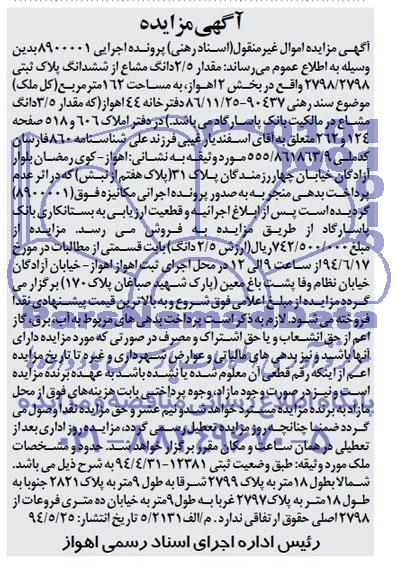 آگهی مزایده
آگهی مزایده اموال غیرمنقول(اسناد رهنی) پرونده اجرایی ۸۹۰۰۰۰۱بدین
وسیله به اطلاع عموم می‌رساند: مقدار ۲/۵دانگ مشاع از ششدانگ پلاک ثبتی
۲۷۹۸/۲۷۹۸ واقع در بخش ۲اهواز،به مساحت ۱۶۲مترمربع(کل ملک)
موضوع سند رهنی ۹۰۴۳۷-۸۶/۱۱/۲۵دفترخانه ۴۴اهواز(که مقدار ۳/۵دانگ
مشاع در مالکیت بانک پاسارگاد می‌باشد.) در دفتر املاک ۶۰۶ و ۵۱۸ صفحه
۱۲۴ و ۲۶۲ متعلق به آقای اسفندیار غیبی فرزند علی شناسنامه ۸۶۰فارسان
کدملی ۵۵۵/۸۶۱۸۶۳/۹ مورد وثیقه به نشانی: اهواز - کوی رمضان بلوار
آزادگان خیابان چهار رزمندگان پلاک ۳۱(پلاک هفتم از نبش)که در اثر عدم
پرداخت بدهی منجر به به صدور پرونده اجرایی مکانیزه فوق(۸۹۰۰۰۰۱)
گردیده است پس از ابلاغ اجرائیه و قطعیت ارزیابی به بستانکاری بانک
پاسارگاد از طریق مزایده به فروش می رسد. مزایده از
مبلغ ۷۴۲/۵۰۰/۰۰۰ریال(ارزش ۲/۵دانگ) بابت قسمتی از مطالبات در مورخ
۹۴/۶/۱۷ از ساعت ۹الی ۱۲ در محل اجرای ثبت اهواز اهواز - خیابان آزادگان
خیابان نظام وفا پشت باغ معین (پارک شهید صباغان پلاک ۱۷۰) برگزار می
گردد مزایده از مبلغ اعلامی فوق شروع و به بالاترین قیمت پیشنهادی نقدا
فروخته می‌شود. لازم به ذکر است پرداخت بدهی های مربوط به آب، برق، گاز
اعم از حق انشعاب و یا حق اشتراک و مصرف در صورتی که مورد مزایده دارای
آنها باشد و نیز بدهی های مالیاتی و عوارض شهرداری و غیره تا تاریخ مزایده
اعم از اینکه رقم قطعی آن معلوم شده یا نشده باشد، به عهده برنده مزایده
است و نیز در صورت وجود مازاد، وجوه پرداختی بابت هزینه‌های فوق از محل
مازاد به برنده مزایده مسترد خواهد شد و نیم عشر و حق مزایده نقدا وصول می
گردد ضمنا چنانچه روز مزایده تعطیل رسمی گردد، مزایده روز اداری بعد از
تعطیلی در همان ساعت و مکان مقرر برگزار خواهد شد. حدود و مشخصات
ملک مورد وثیقه: طبق وضعیت ثبتی ۱۲۳۸۱-۹۴/۴/۳۱ به شرح ذیل می باشد.
شمالا بطول ۱۸متر به پلاک ۲۷۹۹ شرقا به طول ۹متر به پلاک ۲۸۲۱ جنوبا به
طول ۱۸متر به پلاک۲۷۹۷ غربا به طول ۹متر به خیابان ده متری فروعات از
۲۷۹۸ اصلی حقوق ارتفاقی ندارد. م/الف ۵/۲۱۳۱ تاریخ انتشار: ۹۴/۵/۲۵
رئیس اداره اجرای اسناد رسمی اهواز
ParsNamadData
پایگاه اطلاع رسانی مناقصه و مزایده
۰۲۱-۸۸۳۴۹۶۷۰-۵